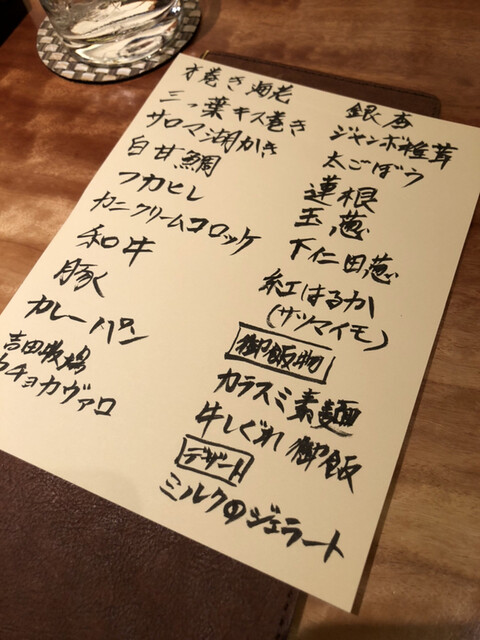 才巻き海老
三つ葉キス巻き
サロマ湖かき
白甘鯛
フカヒレ
カニクリームコロッケ
和牛
豚
カレーパン
吉田牧場
カチョカヴァロ
銀杏
ジャンボ椎茸
太ごぼう
蓮根
玉葱
下仁田葱
紅はるか
(サツマイモ)
御飯物
カラスミ素麺
牛しぐれ御飯
デザート
ミルクのジェラート